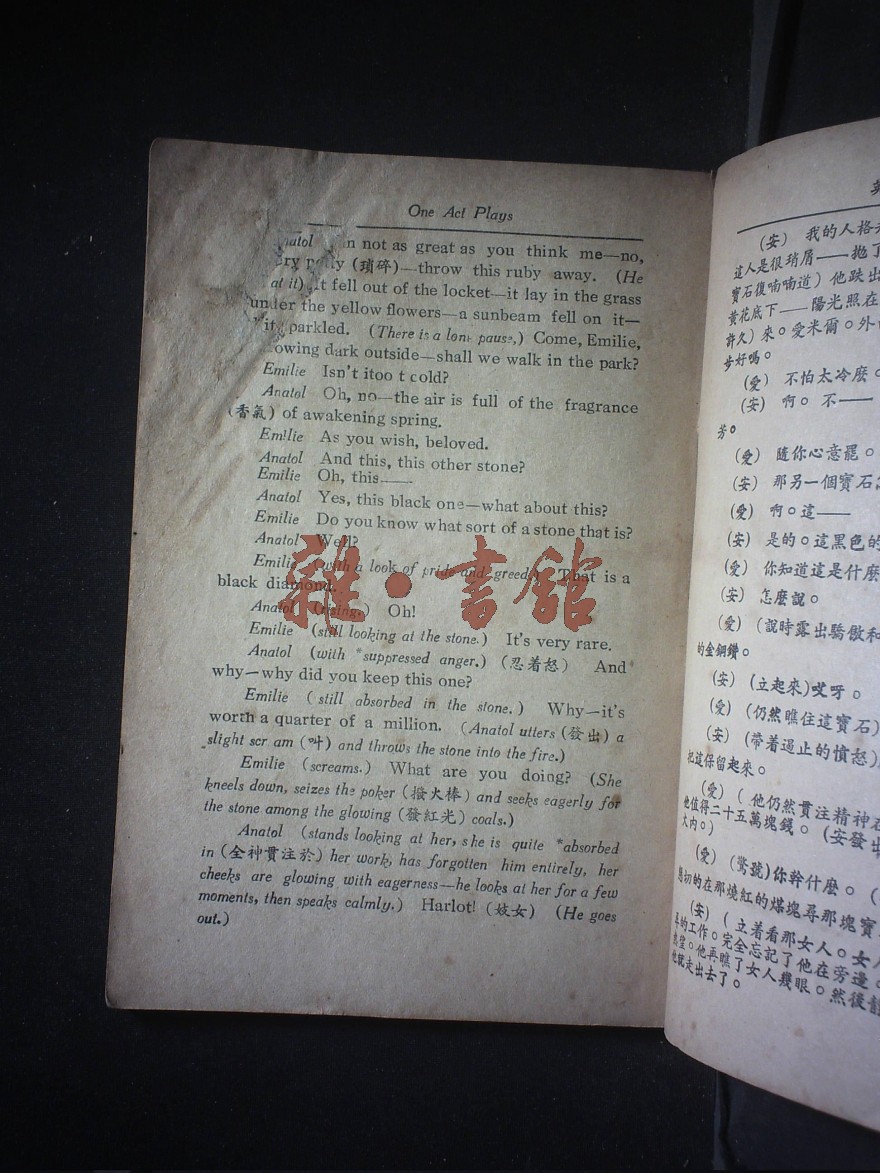 One Act Plays
not as great as you think me—no,
(瑣碎)—throw this ruby away. (He
at it) It fell out of the locket—it lay in the grass
under the yellow flowers—a sunbeam fell on it—
it sparkled. (There is a long pause,) Come, Emilie,
dark outside—shall we walk in the park?
Emilie Isn't itoo t cold?
Anatol Oh, no—the air is full of the fragrance
(香氣) of awakening spring.
Emilie As you wish, beloved.
Anatol And this, this other stone?
Emilie Oh, this——
Anatol Yes, this black one—what about this?
Emilie Do you know what sort of a stone that is?
Anatol Well?
Emilie (with a look of pride and greed.) That is a
black diamond.
Anatol (rising.) Oh!
Emilie (still looking at the stone.) It's very rare.
Anatol (with *suppressed anger.) (忍着怒) And
why—why did you keep this one?
Emilie (still absorbed in the stone.) Why—it's
worth a quarter of a million. (Anatol utters (發出) a
slight scr am (叫) and throws the stone into the fire.)
Emilie (screams.) What are you doing? (She
kneels down, seizes the poker (撥火棒) and seeks eagerly for
the stone among the glowing (發紅光) coals.)
Anatol (stands looking at her, she is quite *absorbed
in (全神貫注於) her work, has forgotten him entirely, her
cheeks are glowing with eagerness—he looks at her for a few
moments, then speaks calmly.) Harlot! (妓女) (He goes
out.)
雜·書舘
英
(安) 我的人格
這人是很琐屑——拋了
寶石復喃喃道) 他跌出
黃花底下——陽光照在
許久) 來。愛米爾。外
步好嗎。
(愛) 不怕太冷麼。
(安) 啊。不——
芳。
(愛) 隨你心意罷。
(安) 那另一個寶石
(愛) 啊。這——
(安) 是的。這黑色的
(愛) 你知道這是什麼
(安) 怎麼說。
(愛) (說時露出驕傲和
的金鋼鑽。
(安) (立起來)哎呀。
(愛) (仍然瞧住這寶石)
(安) (帶着遏止的憤怒)
把這保留起來。
(愛) ( 他仍然貫注精神在
他值得二十五萬塊錢。 (安發出
大內。)
(愛) (驚號)你幹什麼。 (
切的在那燒紅的煤塊尋那塊寶
(安) ( 立着看那女人。女人
的工作。完全忘記了他在旁邊。
望。他再瞧了女人幾眼。然後
他就走出去了。